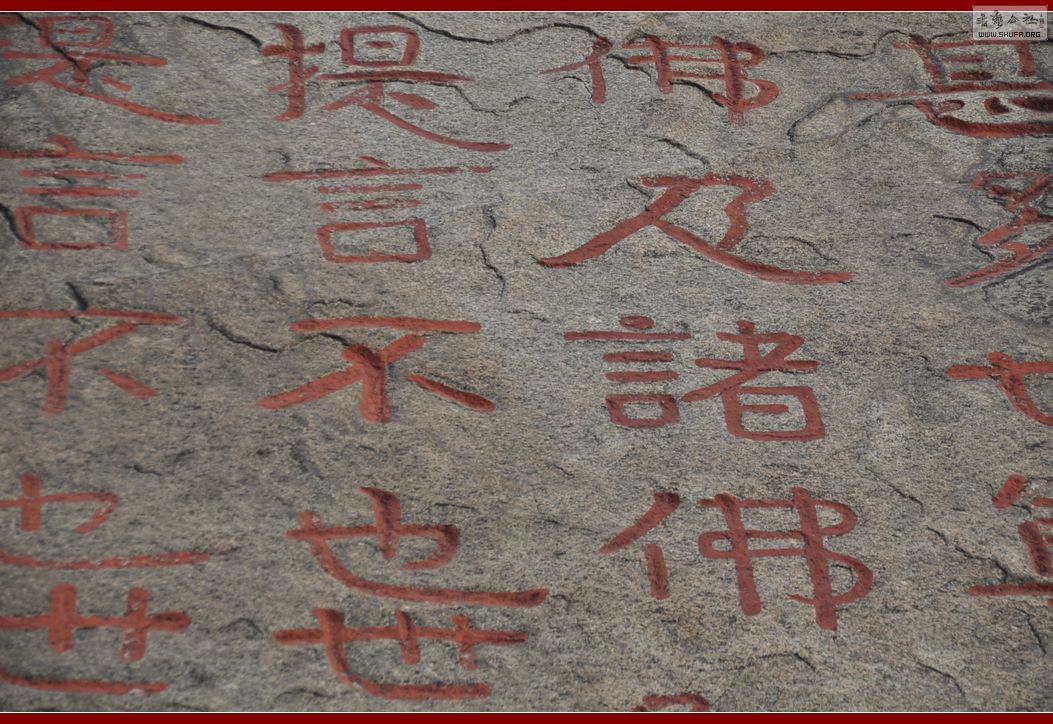 佛及諸佛
提言不也世
提言不也世
書藝公社
WWW.SHUFA.ORG